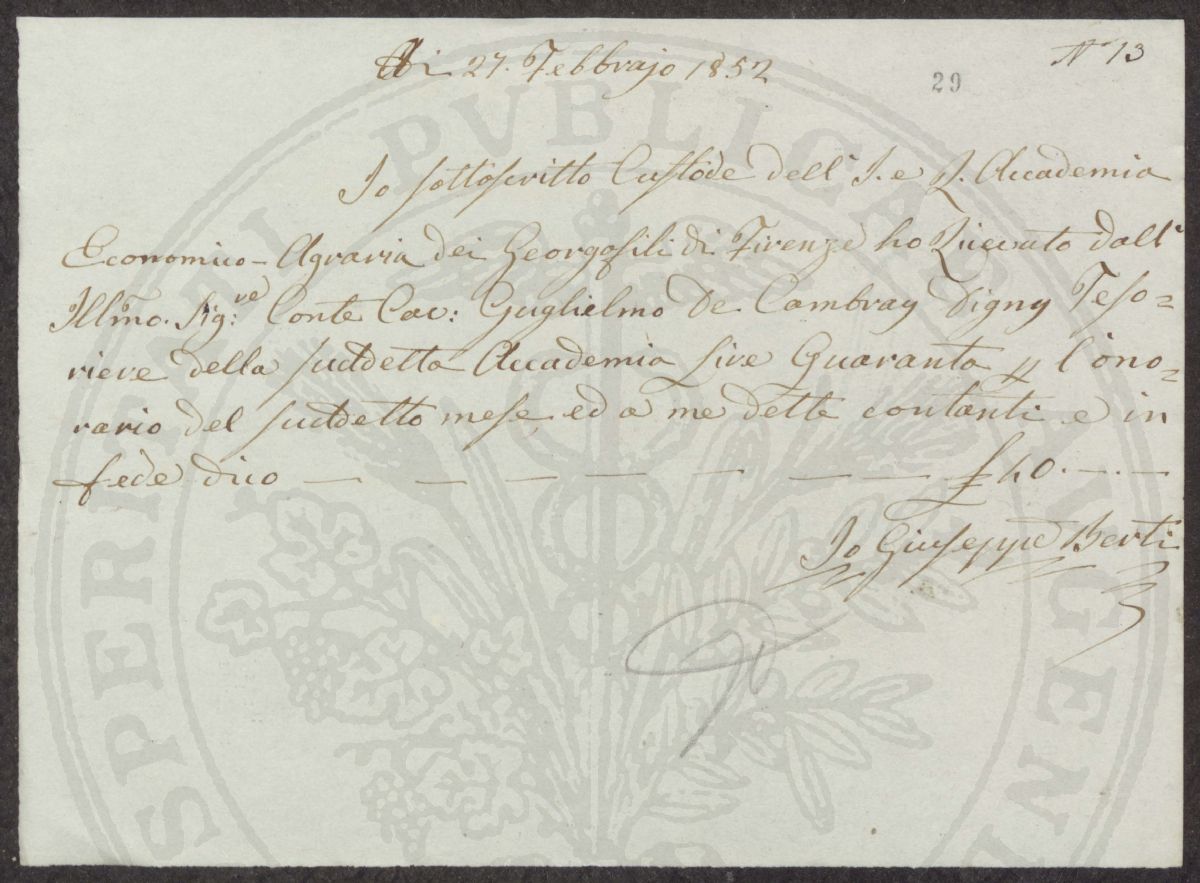 Adi 27. Febbrajo 1852
N° 13
29
Io sottoscritto Custode dell' I. e R. Accademia
Economico-Agraria dei Georgofili di Firenze ho Ricevuto dall'
Illmo. Sig:re Conte Cav: Guglielmo De Cambray Digny Teso=
riere della suddetta Accademia Lire Quaranta p l'ono=
rario del suddetto mese, ed a me dette contanti e in
fede dico — — — — — — — £ 40. — . —
Io Giuseppe Berti
PROSPERITATI PUBLICAE AUGENDAE